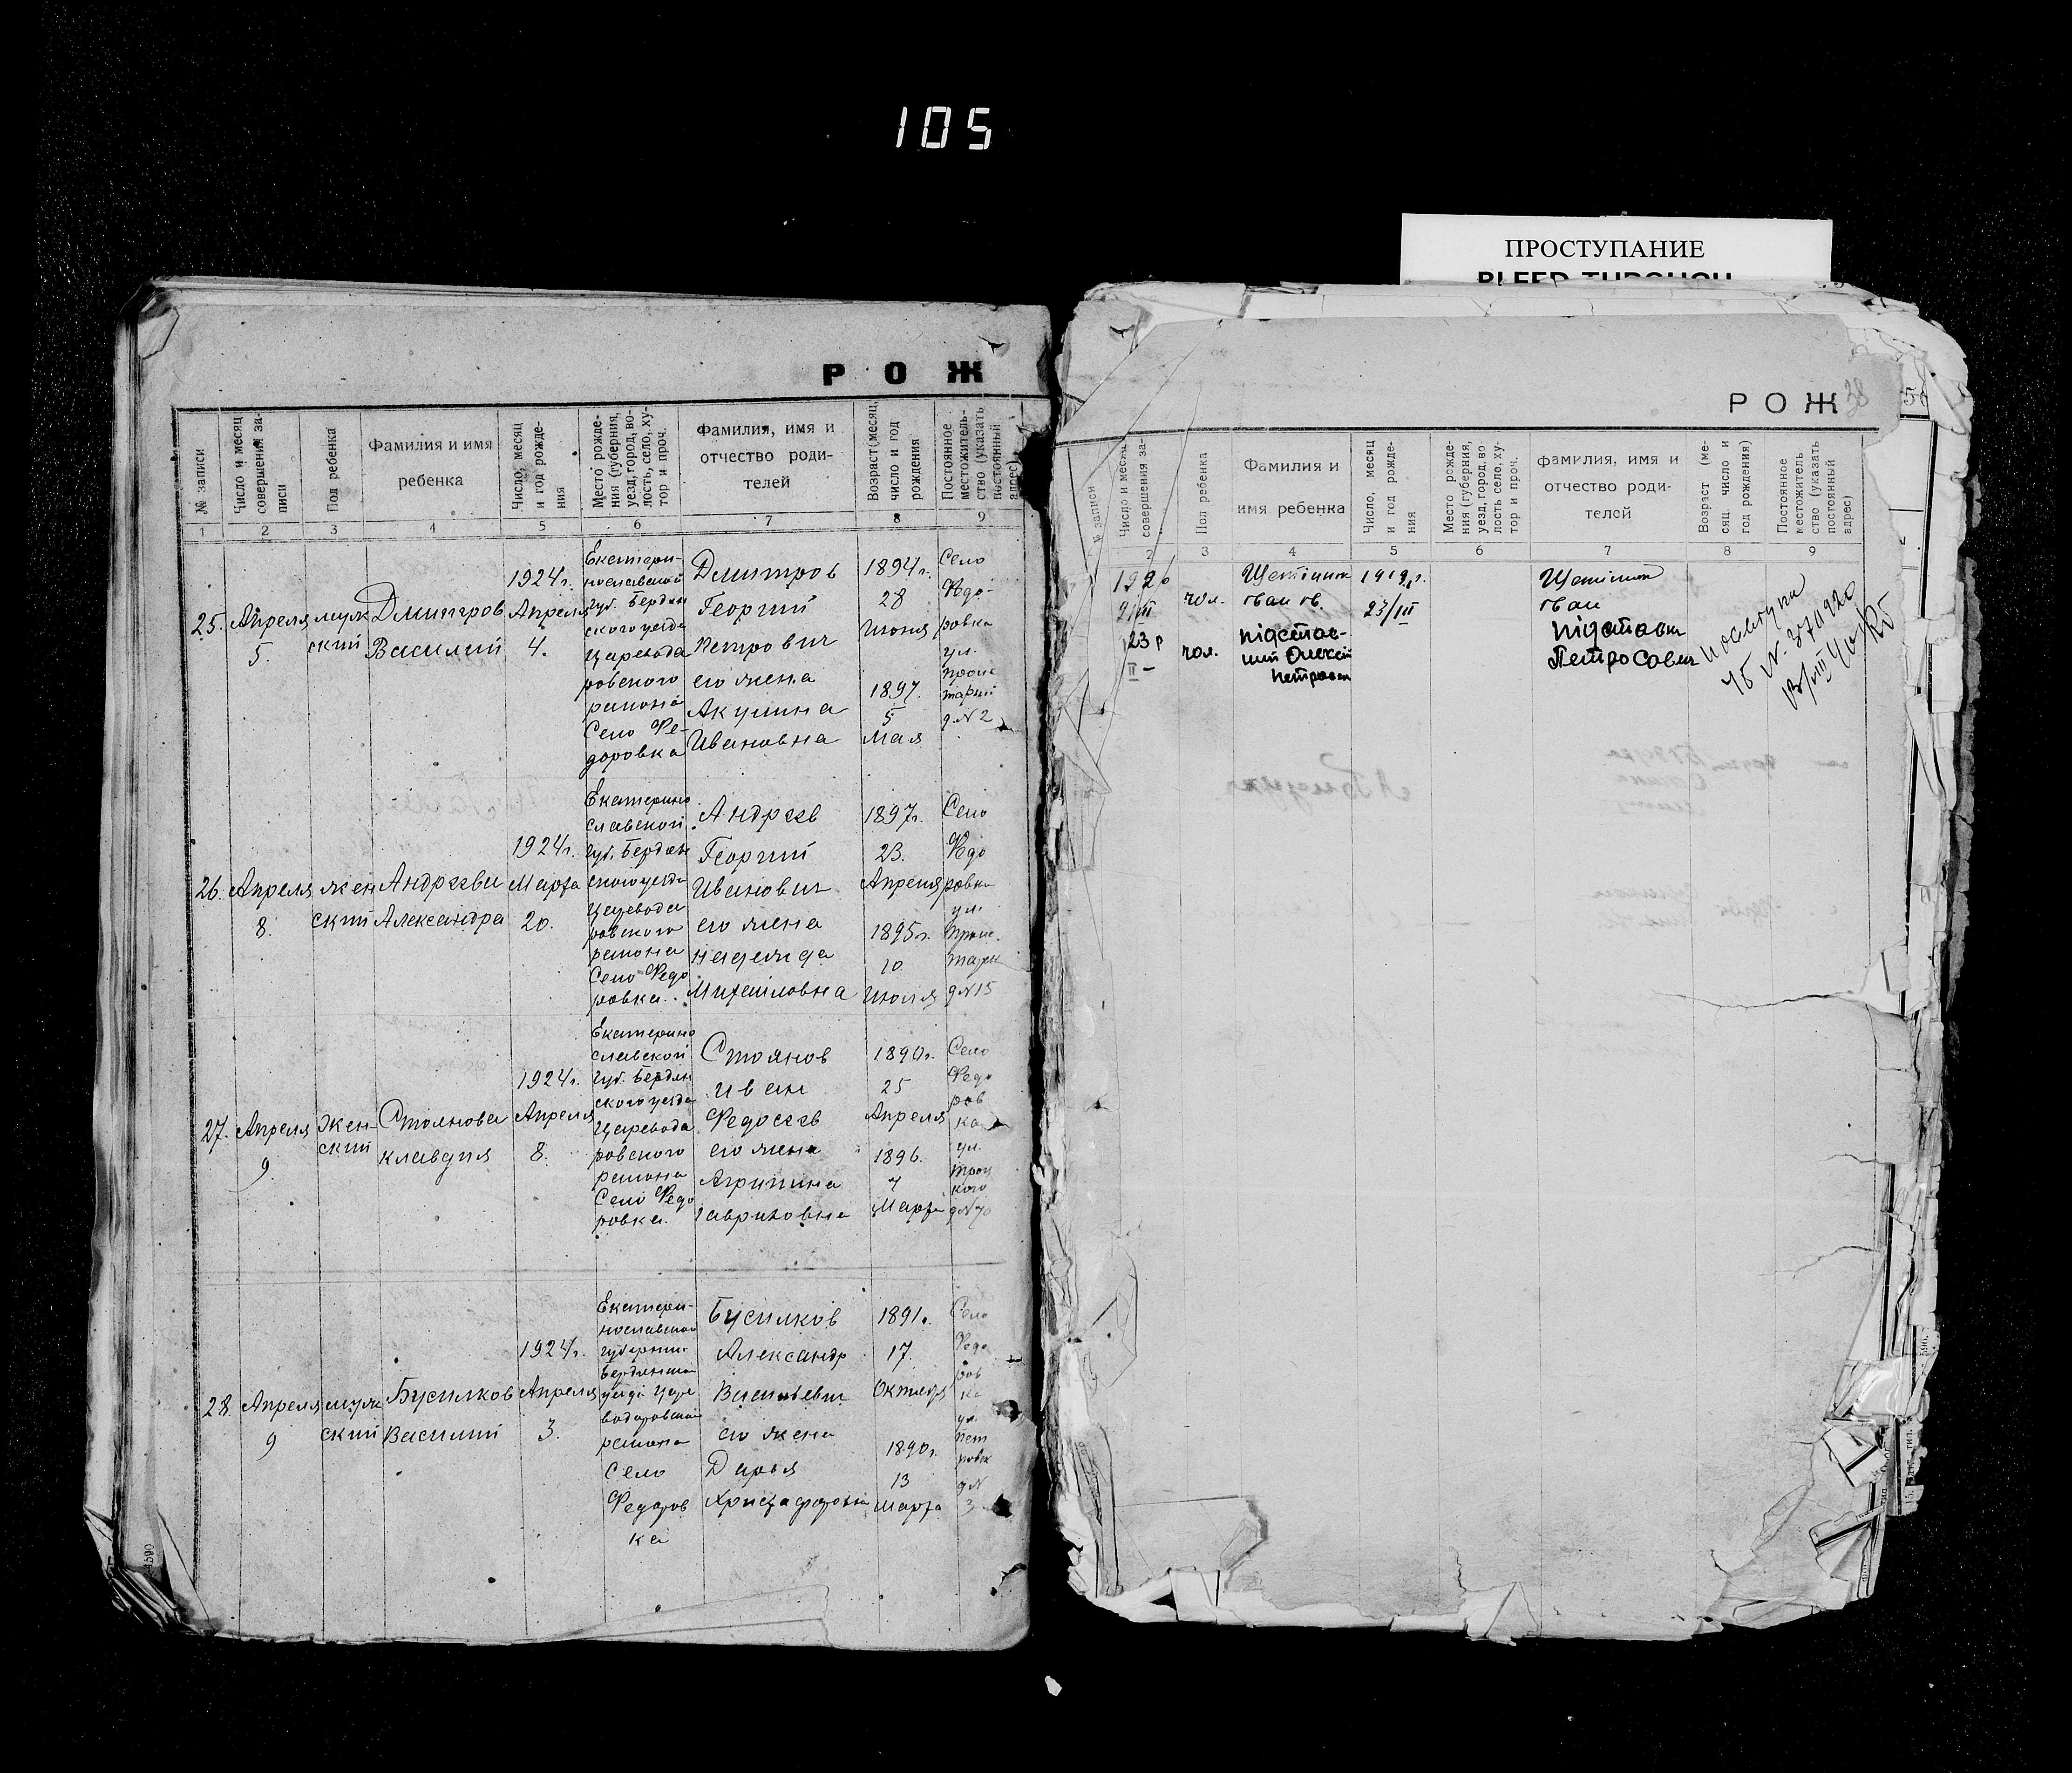 105
ПРОСТУПАНИЕ
BLEED THROUGH
Р О Ж
№ записи
Число и месяц
совершения за-
писи
Пол ребенка
Фамилия и имя
ребенка
Число, месяц
и год рожде-
ния
Место рожде-
ния (губерния,
уезд, город, во-
лость, село, ху-
тор и проч.
Фамилия, имя и
отчество роди-
телей
Возраст (месяц,
число и год
рождения
Постоянное
местожитель-
ство (указать
постоянный
адрес)
1 2 3 4 5 6 7 8 9
25.
Апреля
5.
муж
ский
Дмитров
Василий
1924 г.
Апреля
4.
Екатери-
нославской
губ. Бердян
ского уезда
Царевода
ровского
района
Село Фе-
доровка
Дмитров
Георгий
Петрович
его жена
Акулина
Ивановна
1894 г.
28
Июня
1897.
5
Мая
Село
Федо-
ровка
ул.
Проле
тарий
д.№ 2
26.
Апреля
8.
жен
ский
Андреева
Александра
1924 г.
Марта
20.
Екатерино
славской
губ. Бердян
ского уезда
Царевода
ровского
района
Село Федо
ровка.
Андреев
Георгий
Иванович
его жена
Надежда
Михайловна
1897 г.
23.
Апреля
1895 г.
10
Июля
Село
Федо
ровка
ул.
Проле.
тари
д№15
27.
Апреля
9.
Жен-
ский
Стоянова
Клавдия
1924 г.
Апреля
8.
Екатерино
славской
губ. Бердян
ского уезда
Царевода
ровского
района
Село Федо
ровка.
Стоянов
Иван
Федосеев
его жена
Агрипина
Гавриловна
1890 г.
25
Апреля
1896.
4
Марта
Село
Федо
ров
ка
ул.
Троц
кого
д№70
28.
Апреля
9
муж
ский
Бусилков
Василий
1924 г.
Апреля
3.
Екатери-
нославской
губернии
Бердянска
уезда Царе
водаровский
района
Село
Федоров
ка
Бусилков
Александр
Васильевич
его жена
Дарья
Христофоровна
1891 г.
17.
Октября
1890 г.
13
Марта
Село
Федо
ров
ка
ул.
Пет
ровск
д№
3
4590
Р О Ж
38
№ записи
Число и месяц
совершения за-
Пол ребенка
Фамилия и
имя ребенка
Число, месяц
и год рожде-
ния
Место рожде-
ния (губерния,
уезд, город, во
лость село, ху-
тор и проч.
Фамилия, имя и
отчество роди-
телей
Возраст (ме-
сяц число и
год рождения)
Постоянное
местожитель
ство (указать
постоянный
адрес)
2 3 4 5 6 7 8 9
1920
2/III
чол.
Щетінин
Іван Ів.
1919 г.
23/III
Щетінин
Іван
23 р
II –
чол.
Підстав-
ний Олексій
Петрович